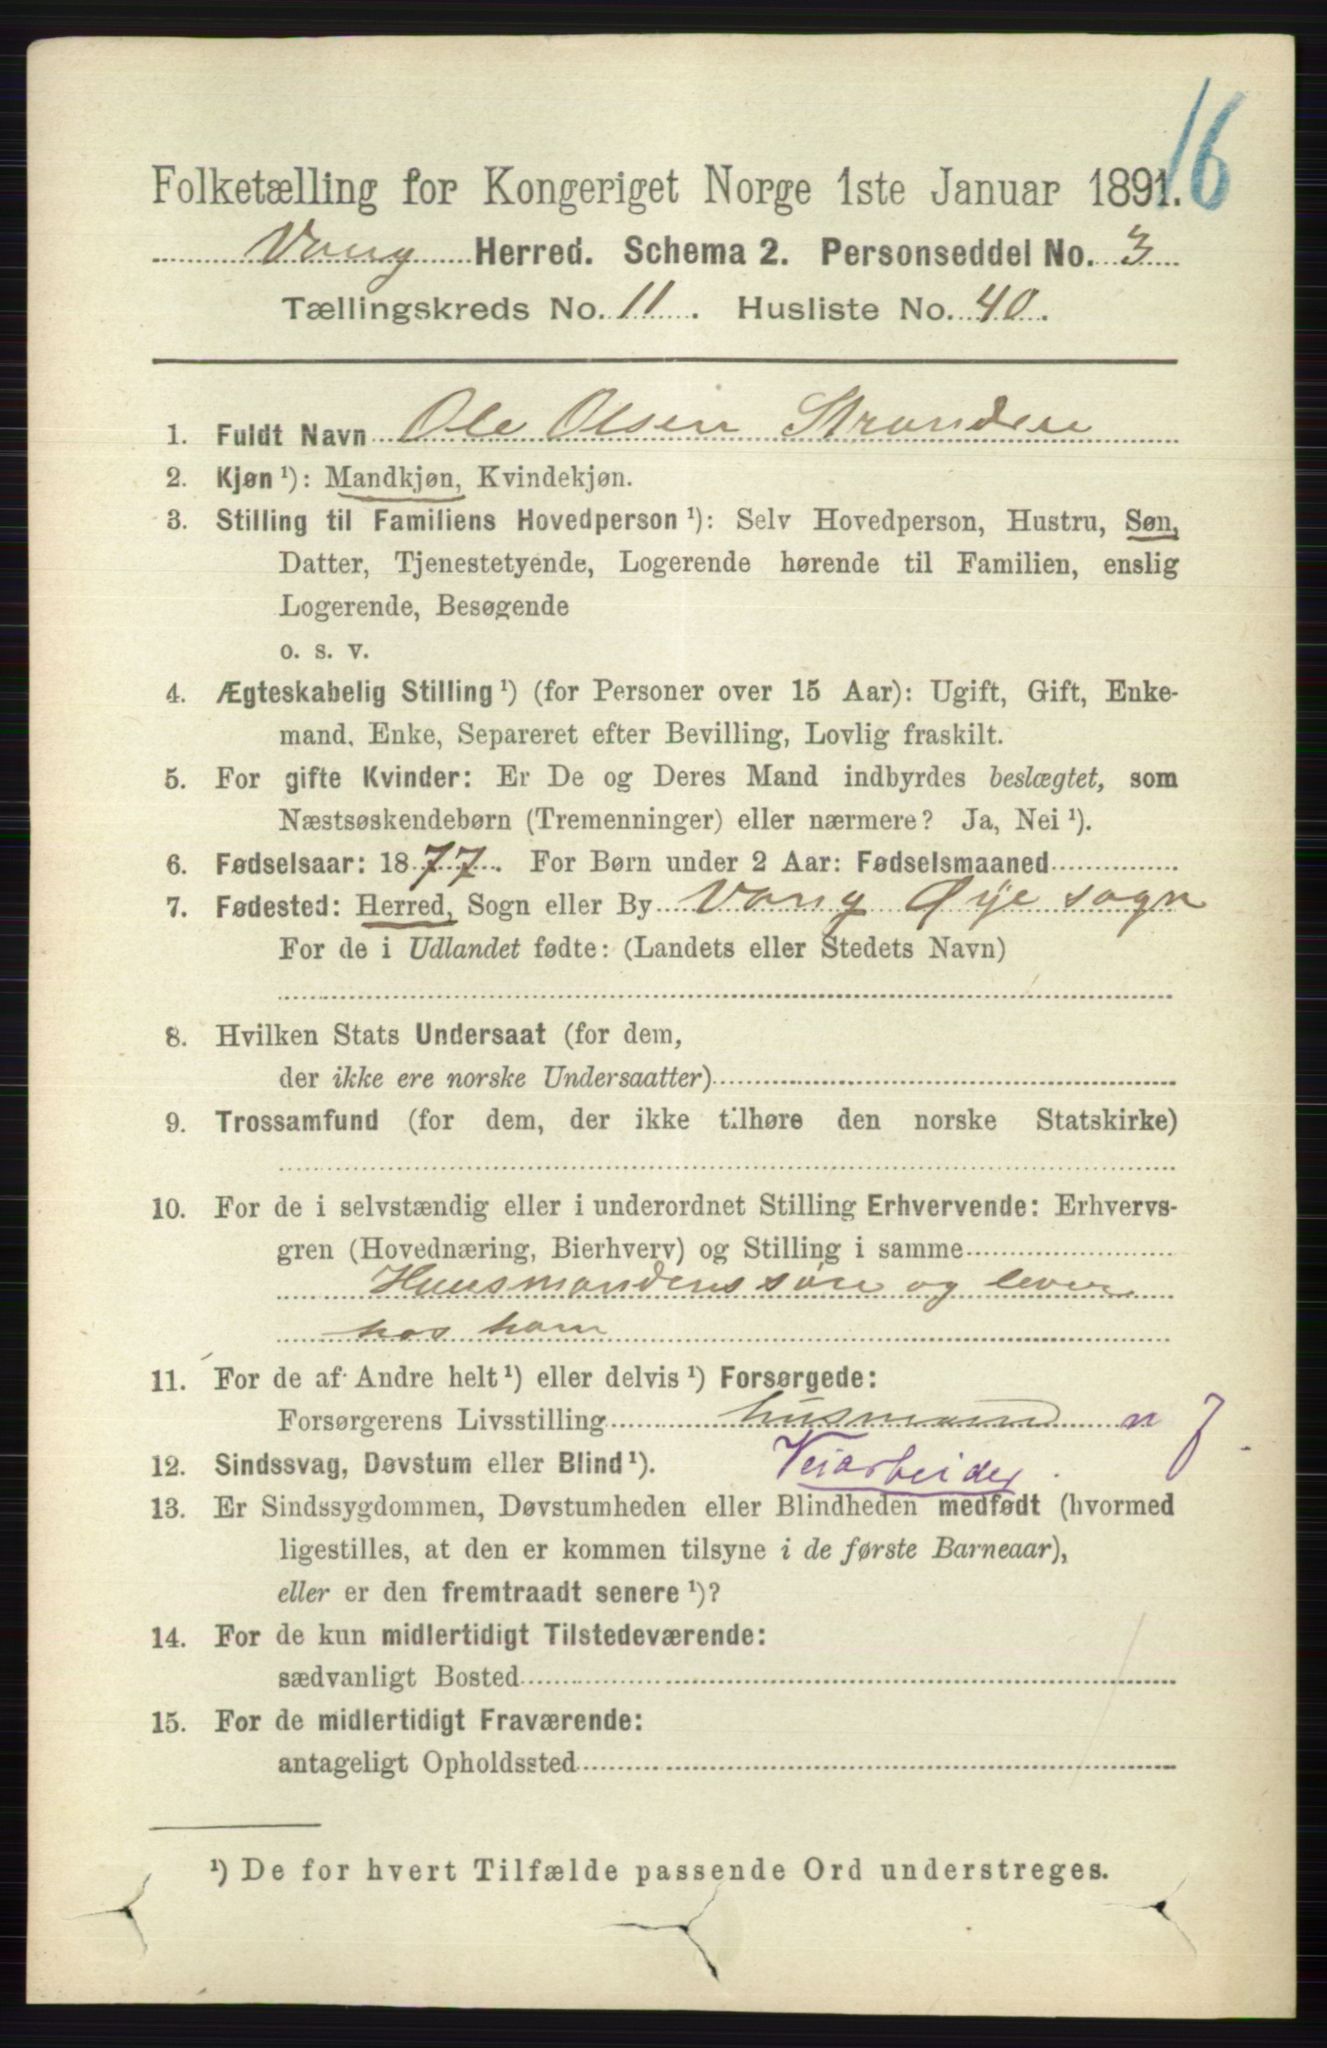 16
Folketælling for Kongeriget Norge 1ste Januar 1891.
Vang Herred. Schema 2. Personseddel No. 3
Tællingskreds No. 11. Husliste No. 40.
1. Fuldt Navn Ole Olsen Stranden
2. Kjøn ¹): Mandkjøn, Kvindekjøn.
3. Stilling til Familiens Hovedperson ¹): Selv Hovedperson, Hustru, Søn,
Datter, Tjenestetyende, Logerende hørende til Familien, enslig
Logerende, Besøgende
o. s. v.
4. Ægteskabelig Stilling ¹) (for Personer over 15 Aar): Ugift, Gift, Enke-
mand, Enke, Separeret efter Bevilling, Lovlig fraskilt.
5. For gifte Kvinder: Er De og Deres Mand indbyrdes beslægtet, som
Næstsøskendebørn (Tremenninger) eller nærmere? Ja, Nei ¹).
6. Fødselsaar: 1877. For Børn under 2 Aar: Fødselsmaaned
7. Fødested: Herred, Sogn eller By Vang Øye sogn
For de i Udlandet fødte: (Landets eller Stedets Navn)
8. Hvilken Stats Undersaat (for dem,
der ikke ere norske Undersaatter)
9. Trossamfund (for dem, der ikke tilhøre den norske Statskirke)
10. For de i selvstændig eller i underordnet Stilling Erhvervende: Erhvervs-
gren (Hovednæring, Bierhverv) og Stilling i samme
Huusmandens søn og lever
hos ham
11. For de af Andre helt ¹) eller delvis ¹) Forsørgede:
Forsørgerens Livsstilling husmand n f
12. Sindssvag, Døvstum eller Blind ¹). Veiarbeider
13. Er Sindssygdommen, Døvstumheden eller Blindheden medfødt (hvormed
ligestilles, at den er kommen tilsyne i de første Barneaar),
eller er den fremtraadt senere ¹)?
14. For de kun midlertidigt Tilstedeværende:
sædvanligt Bosted
15. For de midlertidigt Fraværende:
antageligt Opholdssted
¹) De for hvert Tilfælde passende Ord understreges.